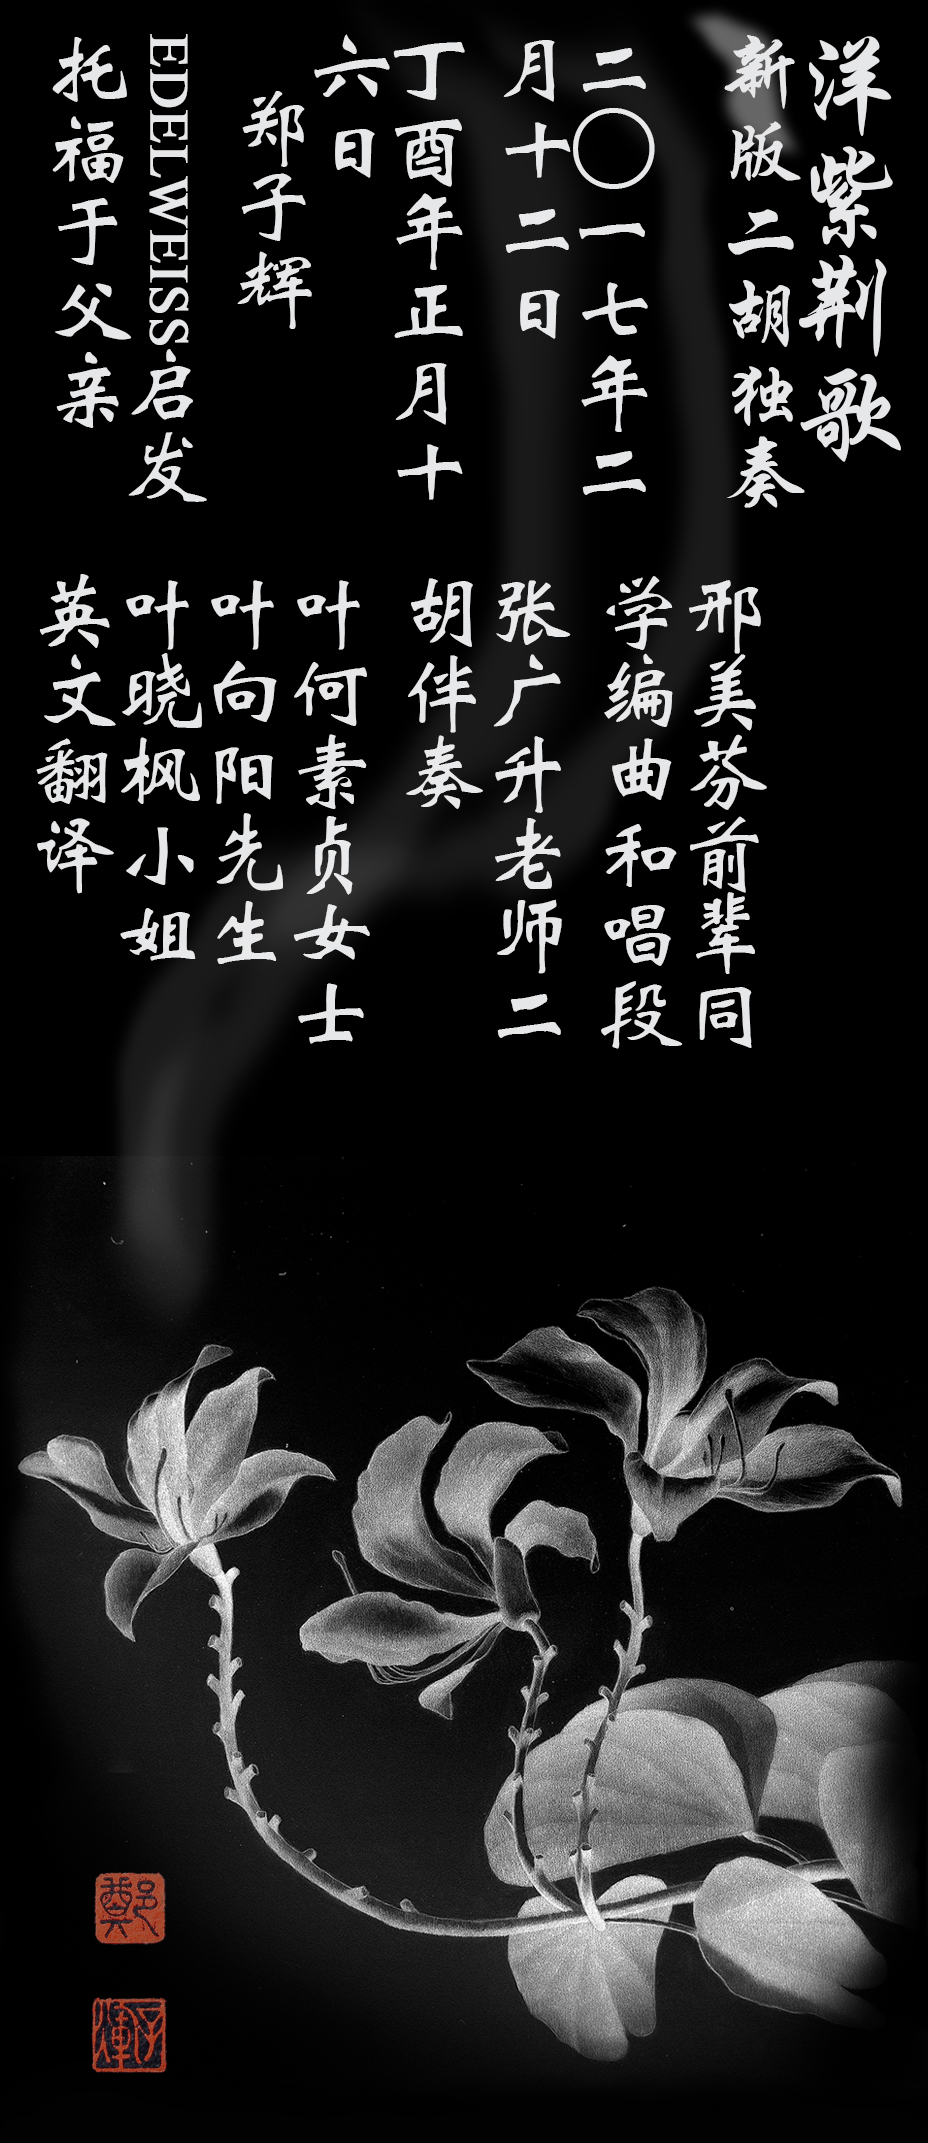 洋紫荆歌
新版二胡独奏
二〇一七年二
月十二日
丁酉年正月十
六日
郑子辉
EDELWEISS启发
托福于父亲
邢美芬前辈同
学编曲和唱段
张广升老师二
胡伴奏
叶何素贞女士
叶向阳先生
叶晓枫小姐
英文翻译
鄭
子輝